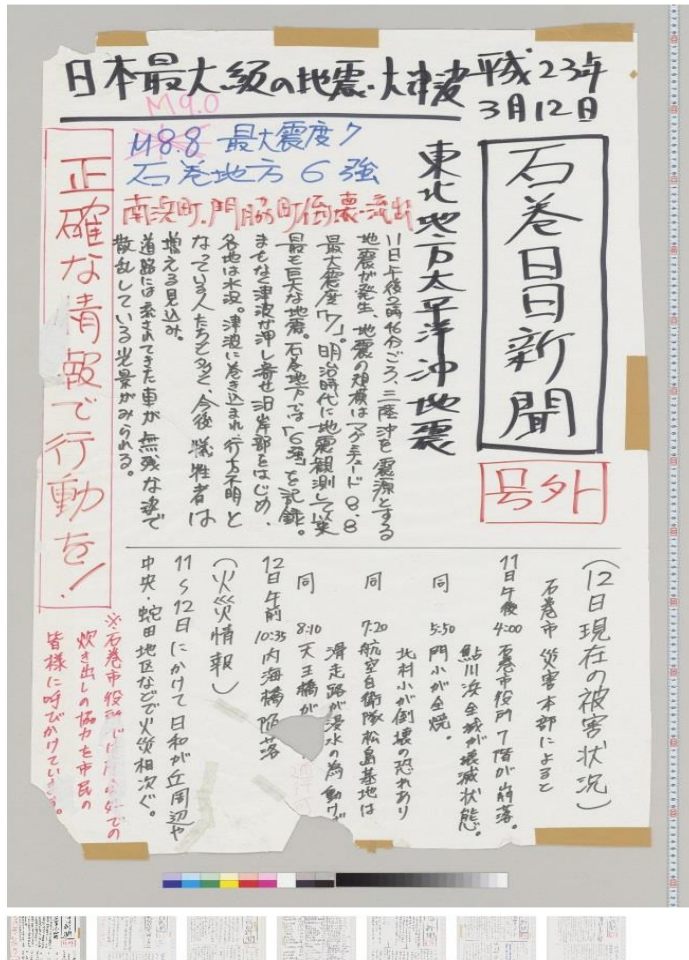 日本最大級の地震・大津波
平成23年
3月12日
石巻日日新聞
号外
M9.0
M8.8 最大震度7
石巻地方 6強
南浜町、門脇町倒壊・流出
東北地方太平洋沖地震
11日午後2時46分ごろ、三陸沖を震源とする
地震が発生、地震の規模はマグニチュード8.8
最大震度「7」。明治時代に地震観測して以来
最も巨大な地震。石巻地方では「6強」を記録。
まもなく津波が押し寄せ沿岸部をはじめ、
各地は水没。津波に巻き込まれ行方不明と
なっている人たちも多く、今後 犠牲者は
増える見込み。
道路には流されてきた車が無残な姿で
散乱している光景がみられる。
正確な情報で行動を!
(12日現在の被害状況)
石巻市 災害本部によると
11日午後 4:00 石巻市役所7階が崩落。
鮎川浜全域が壊滅状態。
同 5:50 門小が全焼。
北村小が倒壊の恐れあり
同 7:20 航空自衛隊松島基地は
滑走路が浸水の為動けず
同 8:10 天王橋が
12日午前 10:35 内海橋陥落
(火災情報)
11〜12日にかけて日和が丘周辺や
中央・蛇田地区などで火災相次ぐ。
※石巻市役所では での
炊き出しの協力を市民の
皆様に呼びかけています。